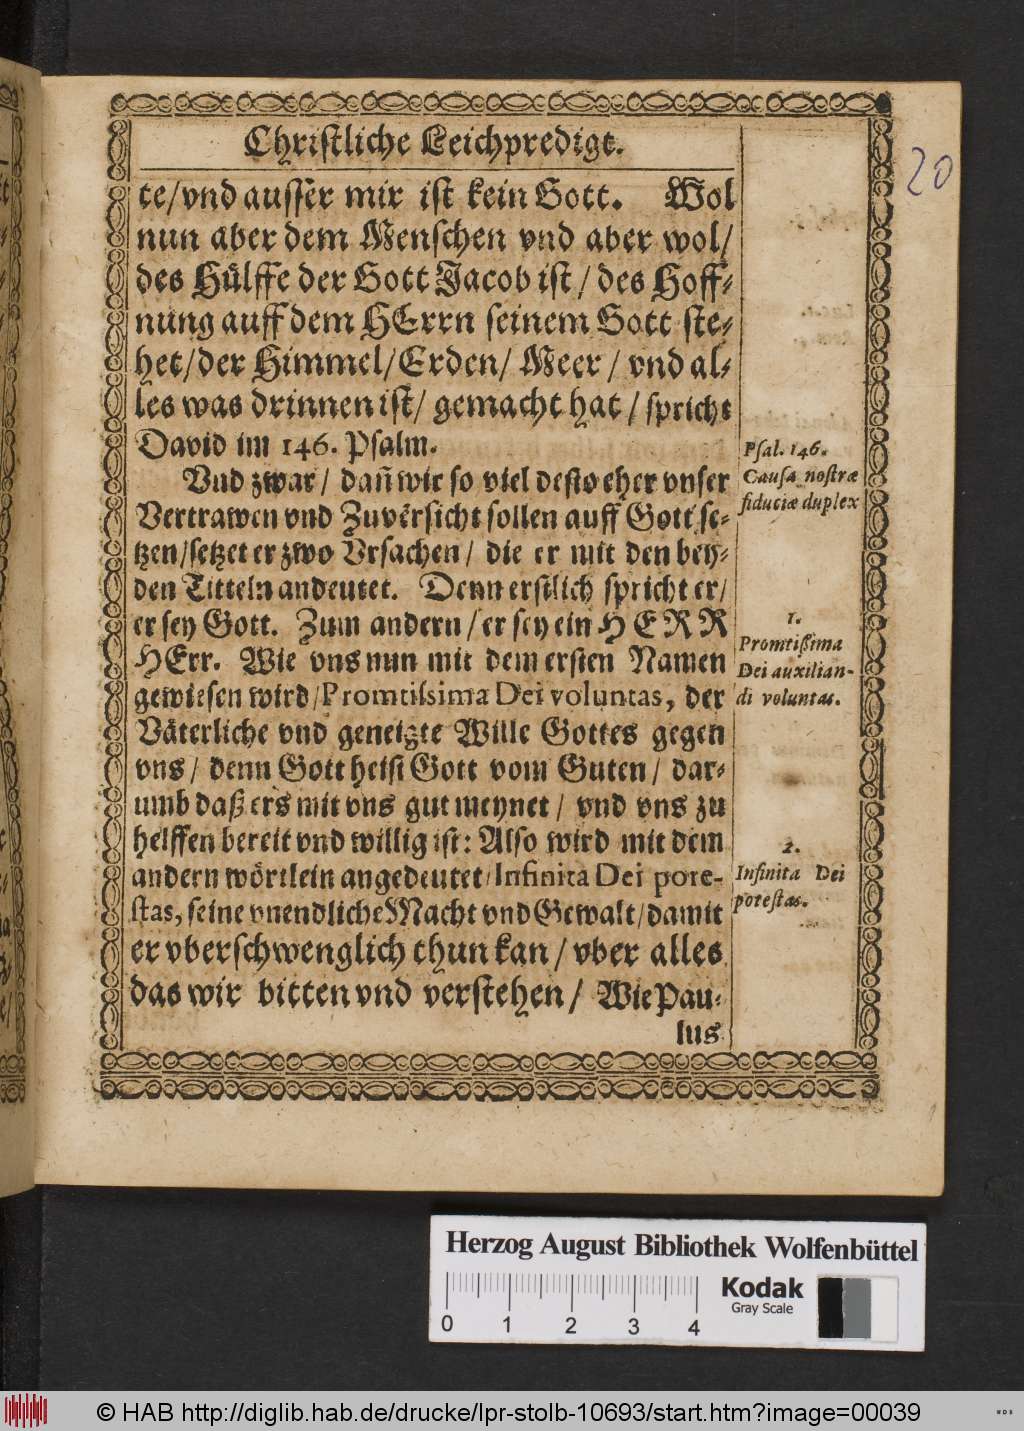 Christliche Leichpredigt.
20
te/vnd ausser mir ist kein Gott. Wol
nun aber dem Menschen vnd aber wol/
des Hülffe der Gott Jacob ist/des Hoff-
nung auff dem HErrn seinem Gott ste-
het/der Himmel/Erden/Meer/vnd al-
les was drinnen ist/gemacht hat/spricht
David im 146. Psalm.
Vnd zwar/dañ wir so viel desto eher vnser
Vertrawen vnd Zuversicht sollen auff Gott se-
tzen/setzet er zwo Vrsachen/die er mit den bey-
den Titteln andeutet. Denn erstlich spricht er/
er sey Gott. Zum andern/er sey ein HERR
HErr. Wie vns nun mit dem ersten Namen
gewiesen wird/Promtissima Dei voluntas, der
Väterliche vnd geneigte Wille Gottes gegen
vns/denn Gott heist Gott vom Guten/dar-
umb daß ers mit vns gut meynet/vnd vns zu
helffen bereit vnd willig ist: Also wird mit dem
andern wörtlein angedeutet/Infinita Dei pote-
stas, seine vnendliche Macht vnd Gewalt/damit
er vberschwenglich thun kan/vber alles
das wir bitten vnd verstehen/Wie Pau-
lus
Psal. 146.
Causa nostræ
fiduciæ duplex
1.
Promtißima
Dei auxilian-
di voluntas.
2.
Infinita Dei
potestas.
Herzog August Bibliothek Wolfenbüttel
Kodak
Gray Scale
0 1 2 3 4
© HAB http://diglib.hab.de/drucke/lpr-stolb-10693/start.htm?image=00039